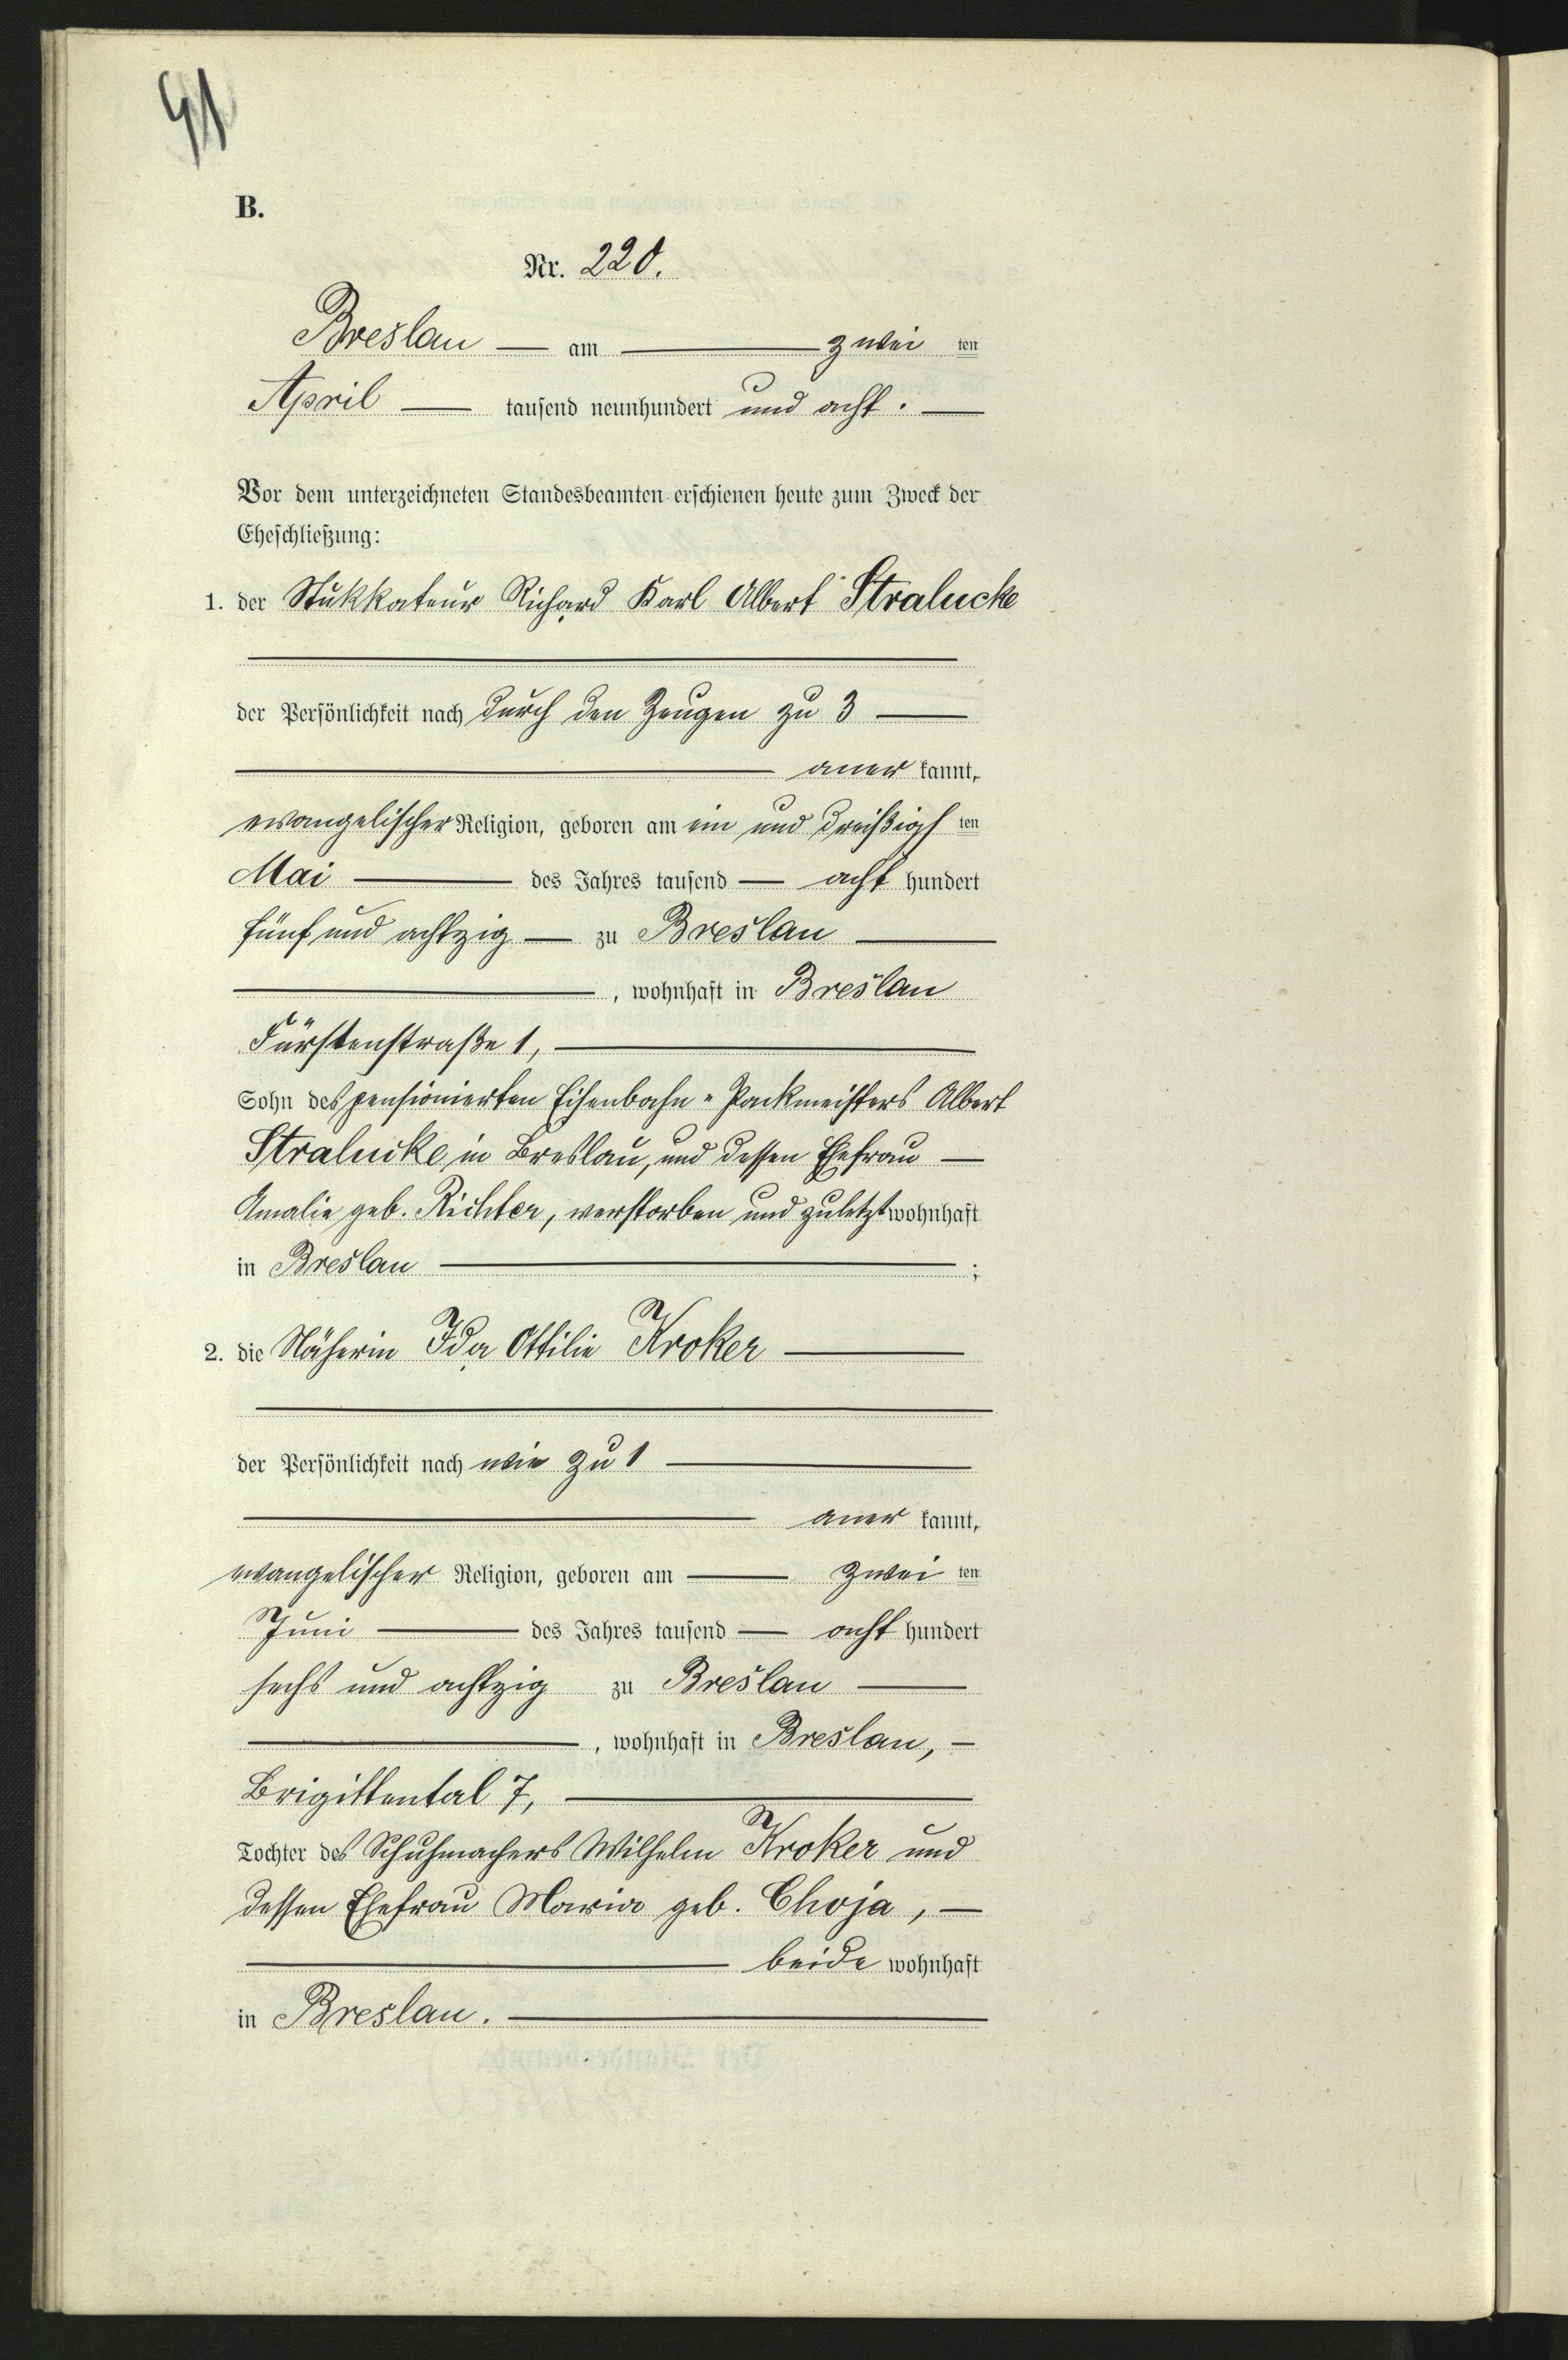 91
B.
Nr. 220.
Breslau — am — zwei ten
April — tausend neunhundert und acht. —
Vor dem unterzeichneten Standesbeamten erschienen heute zum Zweck der
Eheschließung:
1. der Stukkateur Richard Karl Albert Stralucke
der Persönlichkeit nach durch den Zeugen zu 3 —
— aner kannt,
evangelischer Religion, geboren am ein und dreißigs ten
Mai — des Jahres tausend — acht hundert
fünf und achtzig — zu Breslau —
— , wohnhaft in Breslau
Fürstenstraße 1, —
Sohn des pensionierten Eisenbahn-Packmeisters Albert
Stralucke in Breslau, und dessen Ehefrau —
Amalie geb. Richter, verstorben und zuletzt wohnhaft
in Breslau — ;
2. die Näherin Ida Ottilie Kroker —
der Persönlichkeit nach wie zu 1 —
— aner kannt,
evangelischer Religion, geboren am — zwei ten
Juni — des Jahres tausend — acht hundert
sechs und achtzig zu Breslau —
— , wohnhaft in Breslau, —
Brigittental 7, —
Tochter des Schuhmachers Wilhelm Kroker und
dessen Ehefrau Maria geb. Choja, —
— beide wohnhaft
in Breslau. —